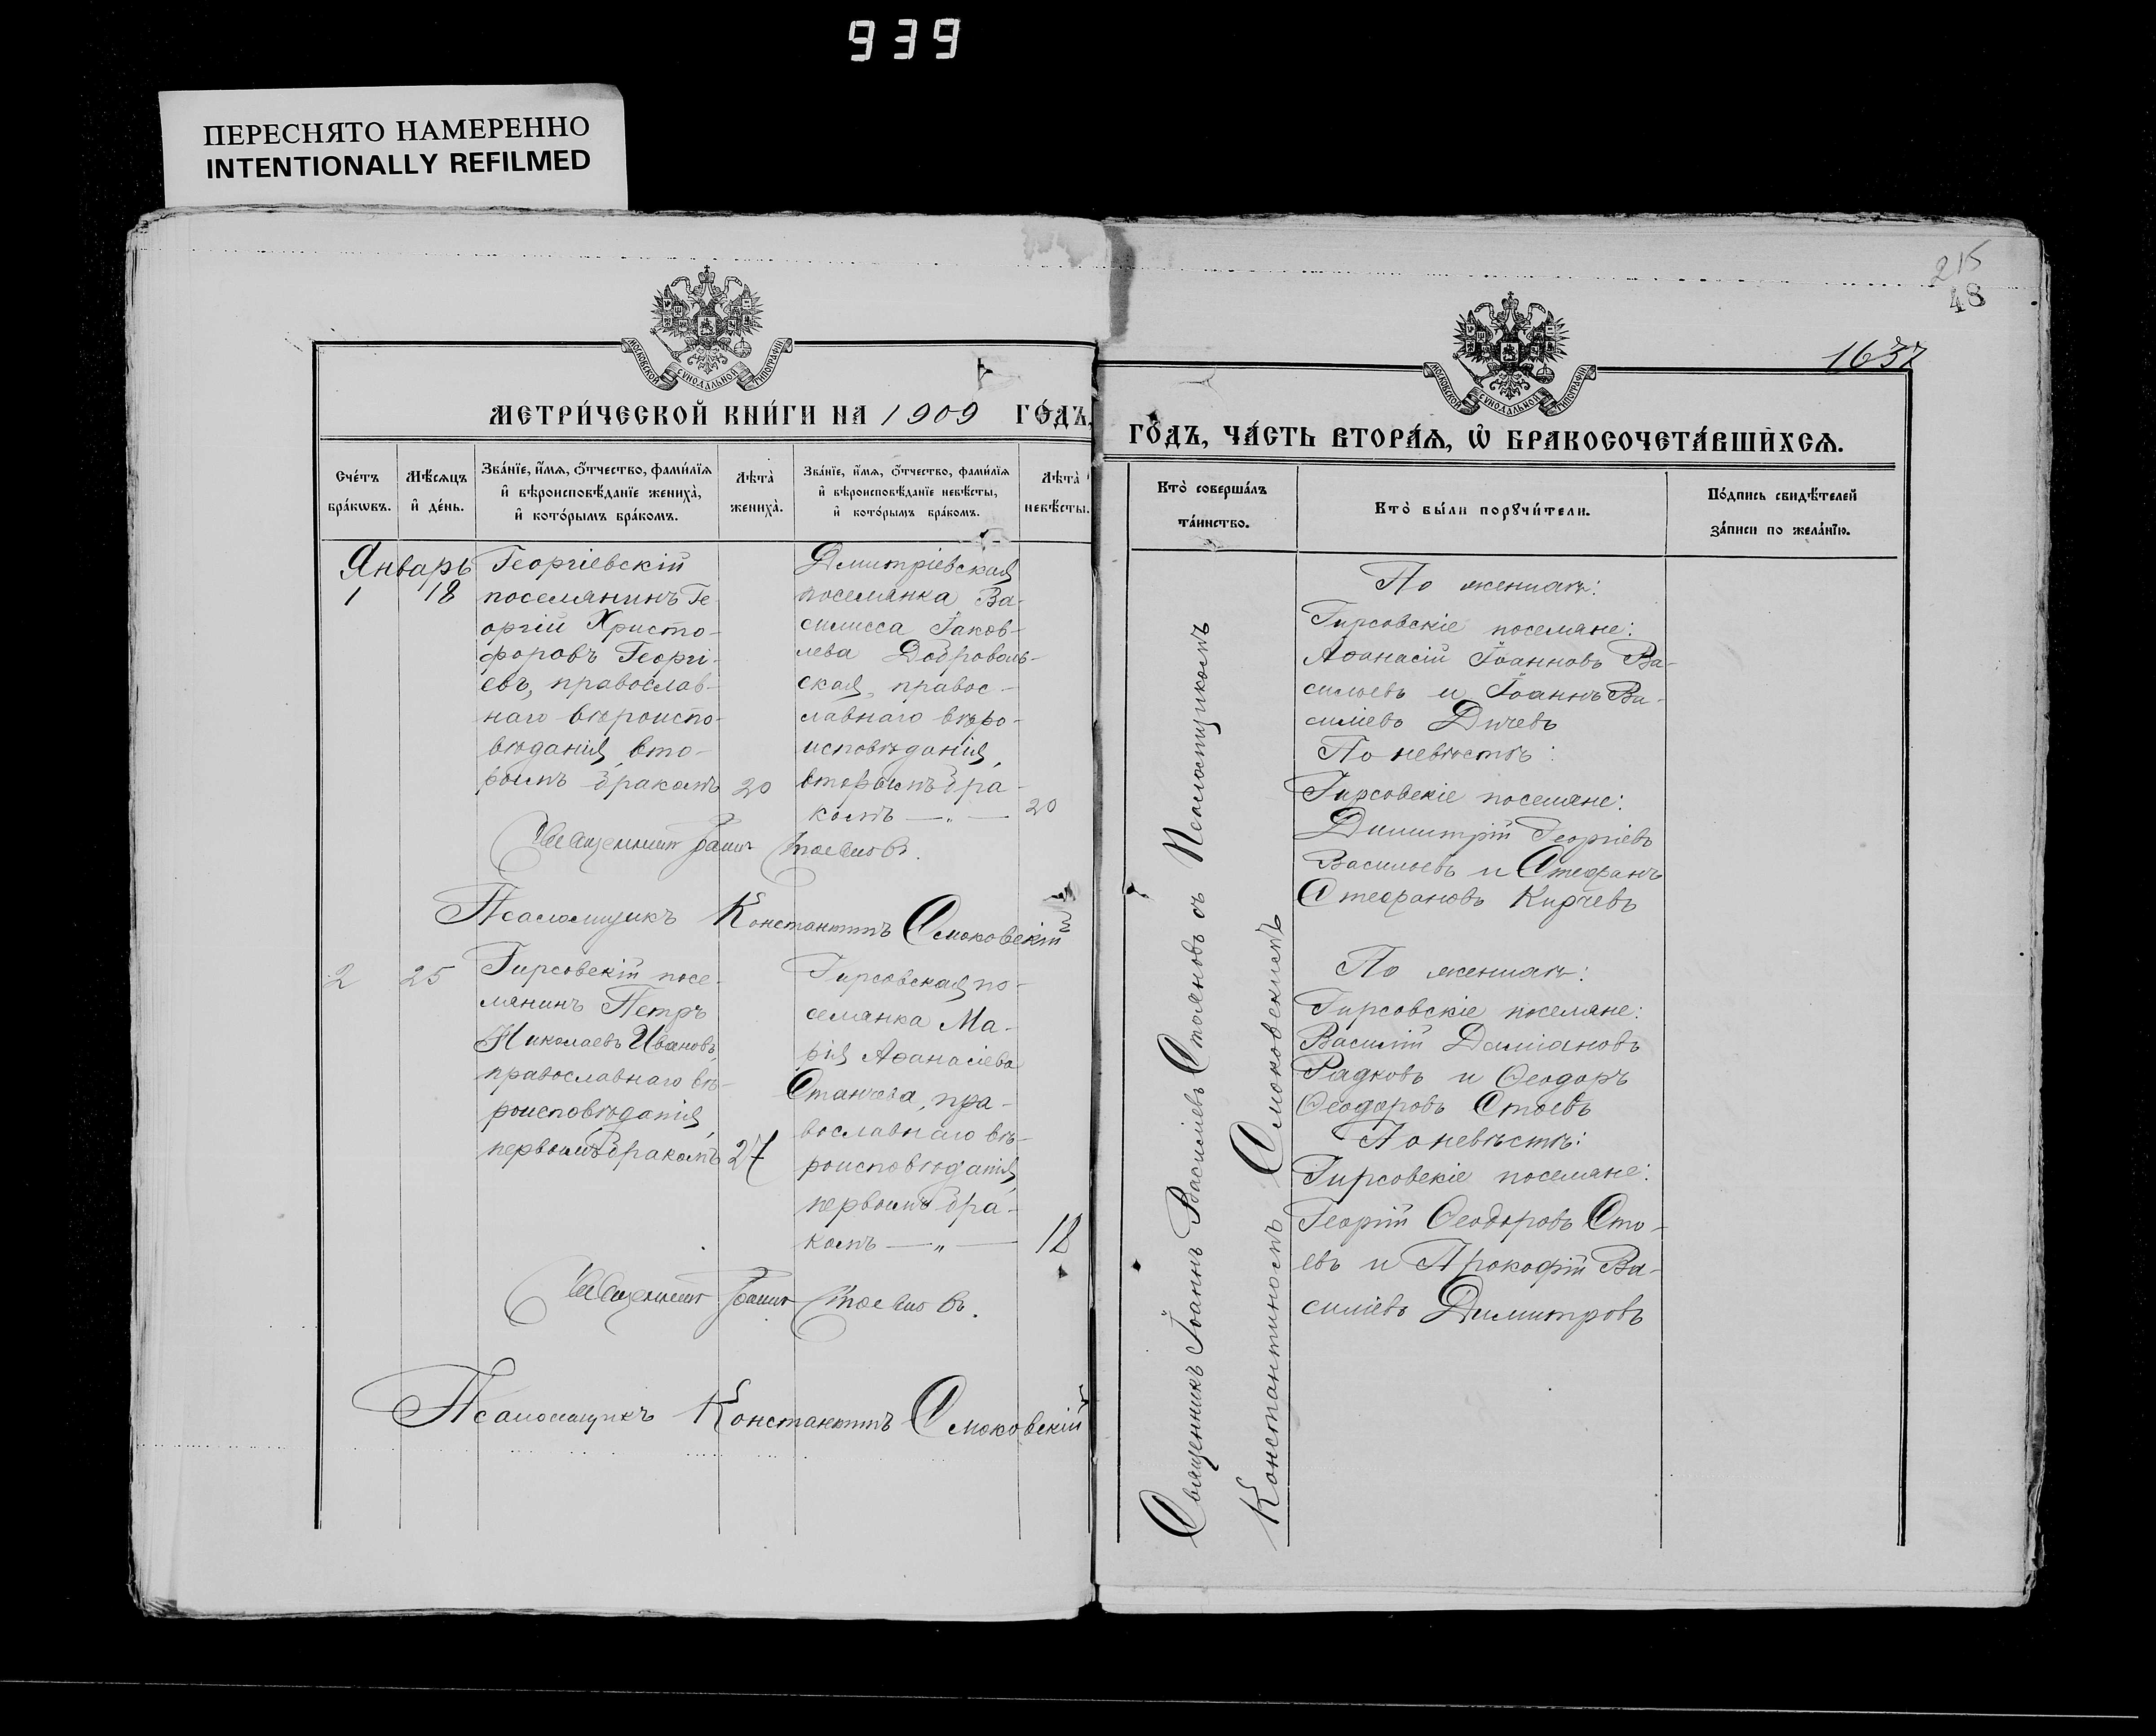 939
ПЕРЕСНЯТО НАМЕРЕННО
INTENTIONALLY REFILMED
МОСКОВСКОЙ СѴНОДАЛЬНОЙ ТИПОГРАФІИ
МЕТРИ́ЧЕСКОЙ КНИ́ГИ НА 1909 ГО́ДЪ,
Сче́тъ бра́кѡвъ.
Мѣ́сѧцъ и҆ де́нь.
Зва́нїе, и҆́мѧ, ѻ҆́тчество, фами́лїѧ
и҆ вѣроисповѣ́данїе жениха̀,
и҆ кото́рымъ бра́комъ.
Лѣта̀ жениха̀.
Зва́нїе, и҆́мѧ, ѻ҆́тчество, фами́лїѧ
и҆ вѣроисповѣ́данїе невѣ́сты,
и҆ кото́рымъ бра́комъ.
Лѣта̀ невѣ́сты.
Январь
1
18
Георгіевскій
поселянинъ Ге-
оргій Христо-
форовъ Георгі-
евъ, православ-
наго вѣроиспо-
вѣданія, вто-
рымъ бракомъ
20
Дмитріевская
поселянка Ва-
силисса Іаков-
лева Доброволь-
ская, правос-
лавнаго вѣро-
исповѣданія,
вторымъ бра-
комъ — „ —
20
Священникъ Іоаннъ Стояновъ.
Псаломщикъ Константинъ Смоковскій
2
25
Гирсовскій посе-
лянинъ Петръ
Николаевъ Ивановъ,
православнаго вѣ-
роисповѣданія,
первымъ бракомъ
27
Гирсовская по-
селянка Ма-
рія Аѳанасіева
Станчева, пра-
вославнаго вѣ-
роисповѣданія,
первымъ бра-
комъ — „ —
18
Священникъ Іоаннъ Стояновъ.
Псаломщикъ Константинъ Смоковскій
215
48
1637
МОСКОВСКОЙ СѴНОДАЛЬНОЙ ТИПОГРАФІИ
ГО́ДЪ, ЧА́СТЬ ВТОРА́Ѧ, Ѡ҆ БРАКОСОЧЕТА́ВШИХСѦ.
Кто̀ соверша́лъ
та́инство.
Кто̀ бы́ли порꙋчи́тели.
По́дпись свидѣ́телей
за́писи по жела́нїю.
Священникъ Іоаннъ Василіевъ Стояновъ съ Псаломщикомъ
Константиномъ Смоковскимъ
По женихѣ:
Гирсовскіе поселяне:
Аѳанасій Іоанновъ Ва-
сильевъ и Іоаннъ Ва-
силіевъ Дичевъ
По невѣстѣ:
Гирсовскіе поселяне:
Димитрій Георгіевъ
Васильевъ и Стефанъ
Стефановъ Кирчевъ
По женихѣ:
Гирсовскіе поселяне:
Василій Даміановъ
Радковъ и Ѳеодоръ
Ѳеодоровъ Стоевъ
По невѣстѣ:
Гирсовскіе поселяне:
Георгій Ѳеодоровъ Сто-
евъ и Прокофій Ва-
силіевъ Димитровъ